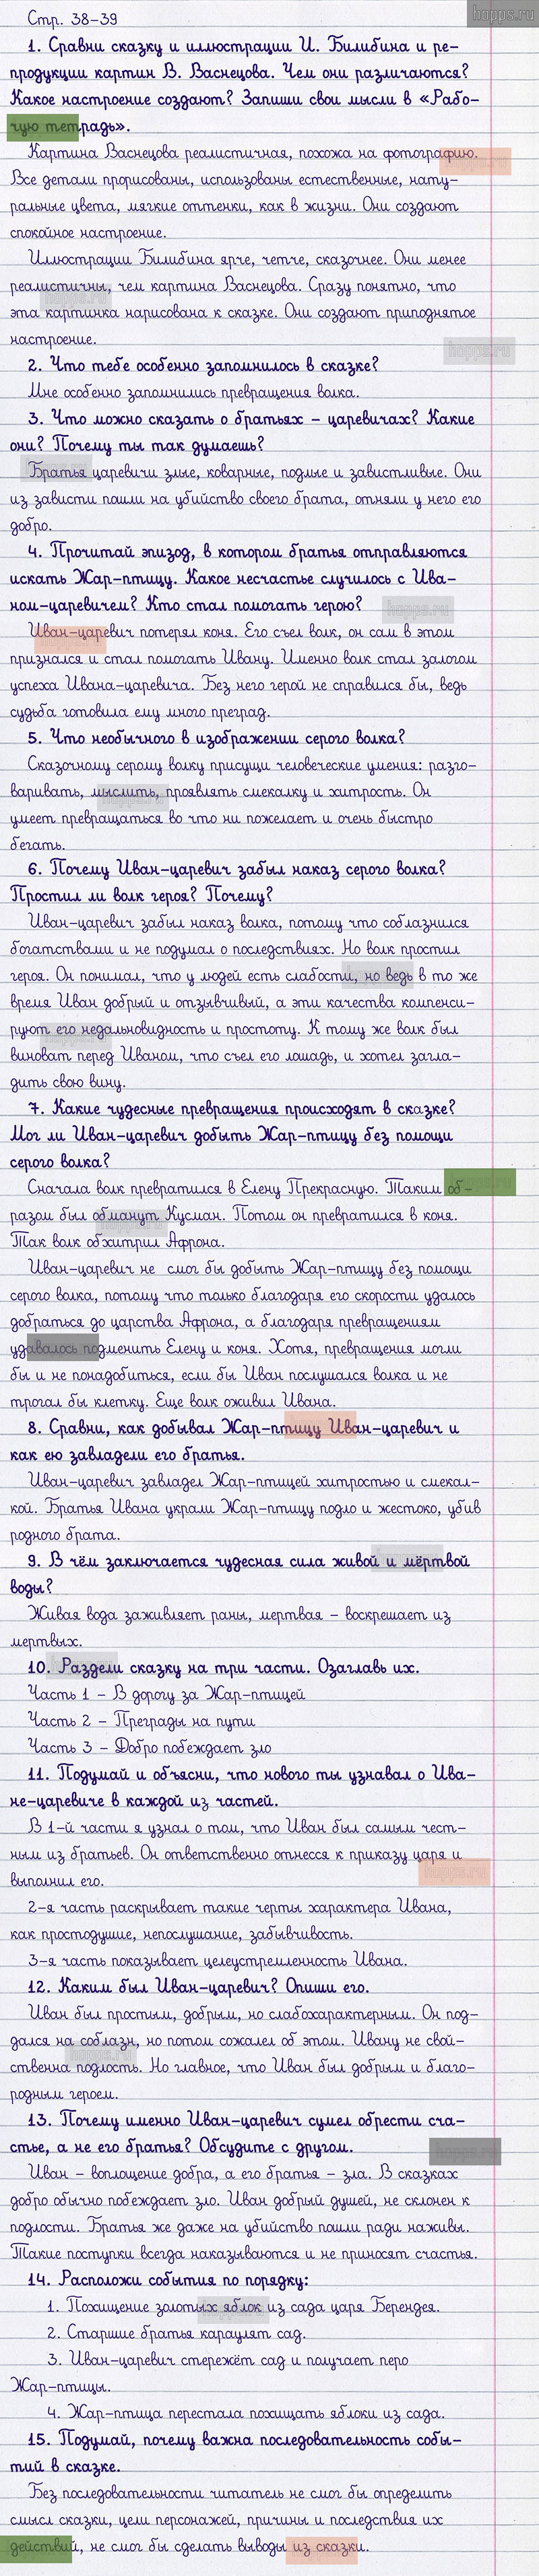 hopps.ru
Стр. 38-39
1. Сравни сказку и иллюстрации И. Билибина и ре-
продукции картин В. Васнецова. Чем они различаются?
Какое настроение создают? Запиши свои мысли в «Рабо-
чую тетрадь».
Картина Васнецова реалистичная, похожа на фотографию.
Все детали прорисованы, использованы естественные, нату-
ральные цвета, мягкие оттенки, как в жизни. Они создают
спокойное настроение.
Иллюстрации Билибина ярче, четче, сказочнее. Они менее
реалистичны, чем картина Васнецова. Сразу понятно, что
эта картинка нарисована к сказке. Они создают приподнятое
настроение.
hopps.ru
2. Что тебе особенно запомнилось в сказке?
Мне особенно запомнились превращения волка.
3. Что можно сказать о братьях – царевичах? Какие
они? Почему ты так думаешь?
Братья царевичи злые, коварные, подлые и завистливые. Они
из зависти пошли на убийство своего брата, отняли у него его
добро.
4. Прочитай эпизод, в котором братья отправляются
искать Жар-птицу. Какое несчастье случилось с Ива-
ном-царевичем? Кто стал помогать герою?
hopps.ru
Иван-царевич потерял коня. Его съел волк, он сам в этом
признался и стал помогать Ивану. Именно волк стал залогом
успеха Ивана-царевича. Без него герой не справился бы, ведь
судьба готовила ему много преград.
5. Что необычного в изображении серого волка?
Сказочному серому волку присущи человеческие умения: разго-
варивать, мыслить, проявлять смекалку и хитрость. Он
умеет превращаться во что ни пожелает и очень быстро
бегать.
6. Почему Иван-царевич забыл наказ серого волка?
Простил ли волк героя? Почему?
Иван-царевич забыл наказ волка, потому что соблазнился
богатствами и не подумал о последствиях. Но волк простил
героя. Он понимал, что у людей есть слабости, но ведь в то же
время Иван добрый и отзывчивый, а эти качества компенси-
руют его недальновидность и простоту. К тому же волк был
виноват перед Иваном, что съел его лошадь, и хотел загла-
дить свою вину.
7. Какие чудесные превращения происходят в сказке?
Мог ли Иван-царевич добыть Жар-птицу без помощи
серого волка?
Сначала волк превратился в Елену Прекрасную. Таким об-
разом был обманут Кусман. Потом он превратился в коня.
Так волк обхитрил Афрона.
Иван-царевич не смог бы добыть Жар-птицу без помощи
серого волка, потому что только благодаря его скорости удалось
добраться до царства Афрона, а благодаря превращениям
удавалось подменить Елену и коня. Хотя, превращения могли
бы и не понадобиться, если бы Иван послушался волка и не
трогал бы клетку. Еще волк оживил Ивана.
8. Сравни, как добывал Жар-птицу Иван-царевич и
как ею завладели его братья.
Иван-царевич завладел Жар-птицей хитростью и смекал-
кой. Братья Ивана украли Жар-птицу подло и жестоко, убив
родного брата.
9. В чём заключается чудесная сила живой и мёртвой
воды?
Живая вода заживляет раны, мертвая – воскрешает из
мертвых.
10. Раздели сказку на три части. Озаглавь их.
Часть 1 – В дорогу за Жар-птицей
Часть 2 – Преграды на пути
Часть 3 – Добро побеждает зло
11. Подумай и объясни, что нового ты узнавал о Ива-
не-царевиче в каждой из частей.
В 1-й части я узнал о том, что Иван был самым чест-
ным из братьев. Он ответственно отнесся к приказу царя и
выполнил его.
hopps.ru
2-я часть раскрывает такие черты характера Ивана,
как простодушие, непослушание, забывчивость.
3-я часть показывает целеустремленность Ивана.
12. Каким был Иван-царевич? Опиши его.
Иван был простым, добрым, но слабохарактерным. Он под-
дался на соблазн, но потом сожалел об этом. Ивану не свой-
ственна подлость. Но главное, что Иван был добрым и благо-
родным героем.
13. Почему именно Иван-царевич сумел обрести сча-
стье, а не его братья? Обсудите с другом.
hopps.ru
Иван – воплощение добра, а его братья – зла. В сказках
добро обычно побеждает зло. Иван добрый душей, не склонен к
подлости. Братья же даже на убийство пошли ради наживы.
Такие поступки всегда наказываются и не приносят счастья.
14. Расположи события по порядку:
1. Похищение золотых яблок из сада царя Берендея.
2. Старшие братья караулят сад.
3. Иван-царевич стережёт сад и получает перо
Жар-птицы.
4. Жар-птица перестала похищать яблоки из сада.
15. Подумай, почему важна последовательность собы-
тий в сказке.
Без последовательности читатель не смог бы определить
смысл сказки, цели персонажей, причины и последствия их
действий, не смог бы сделать выводы из сказки.